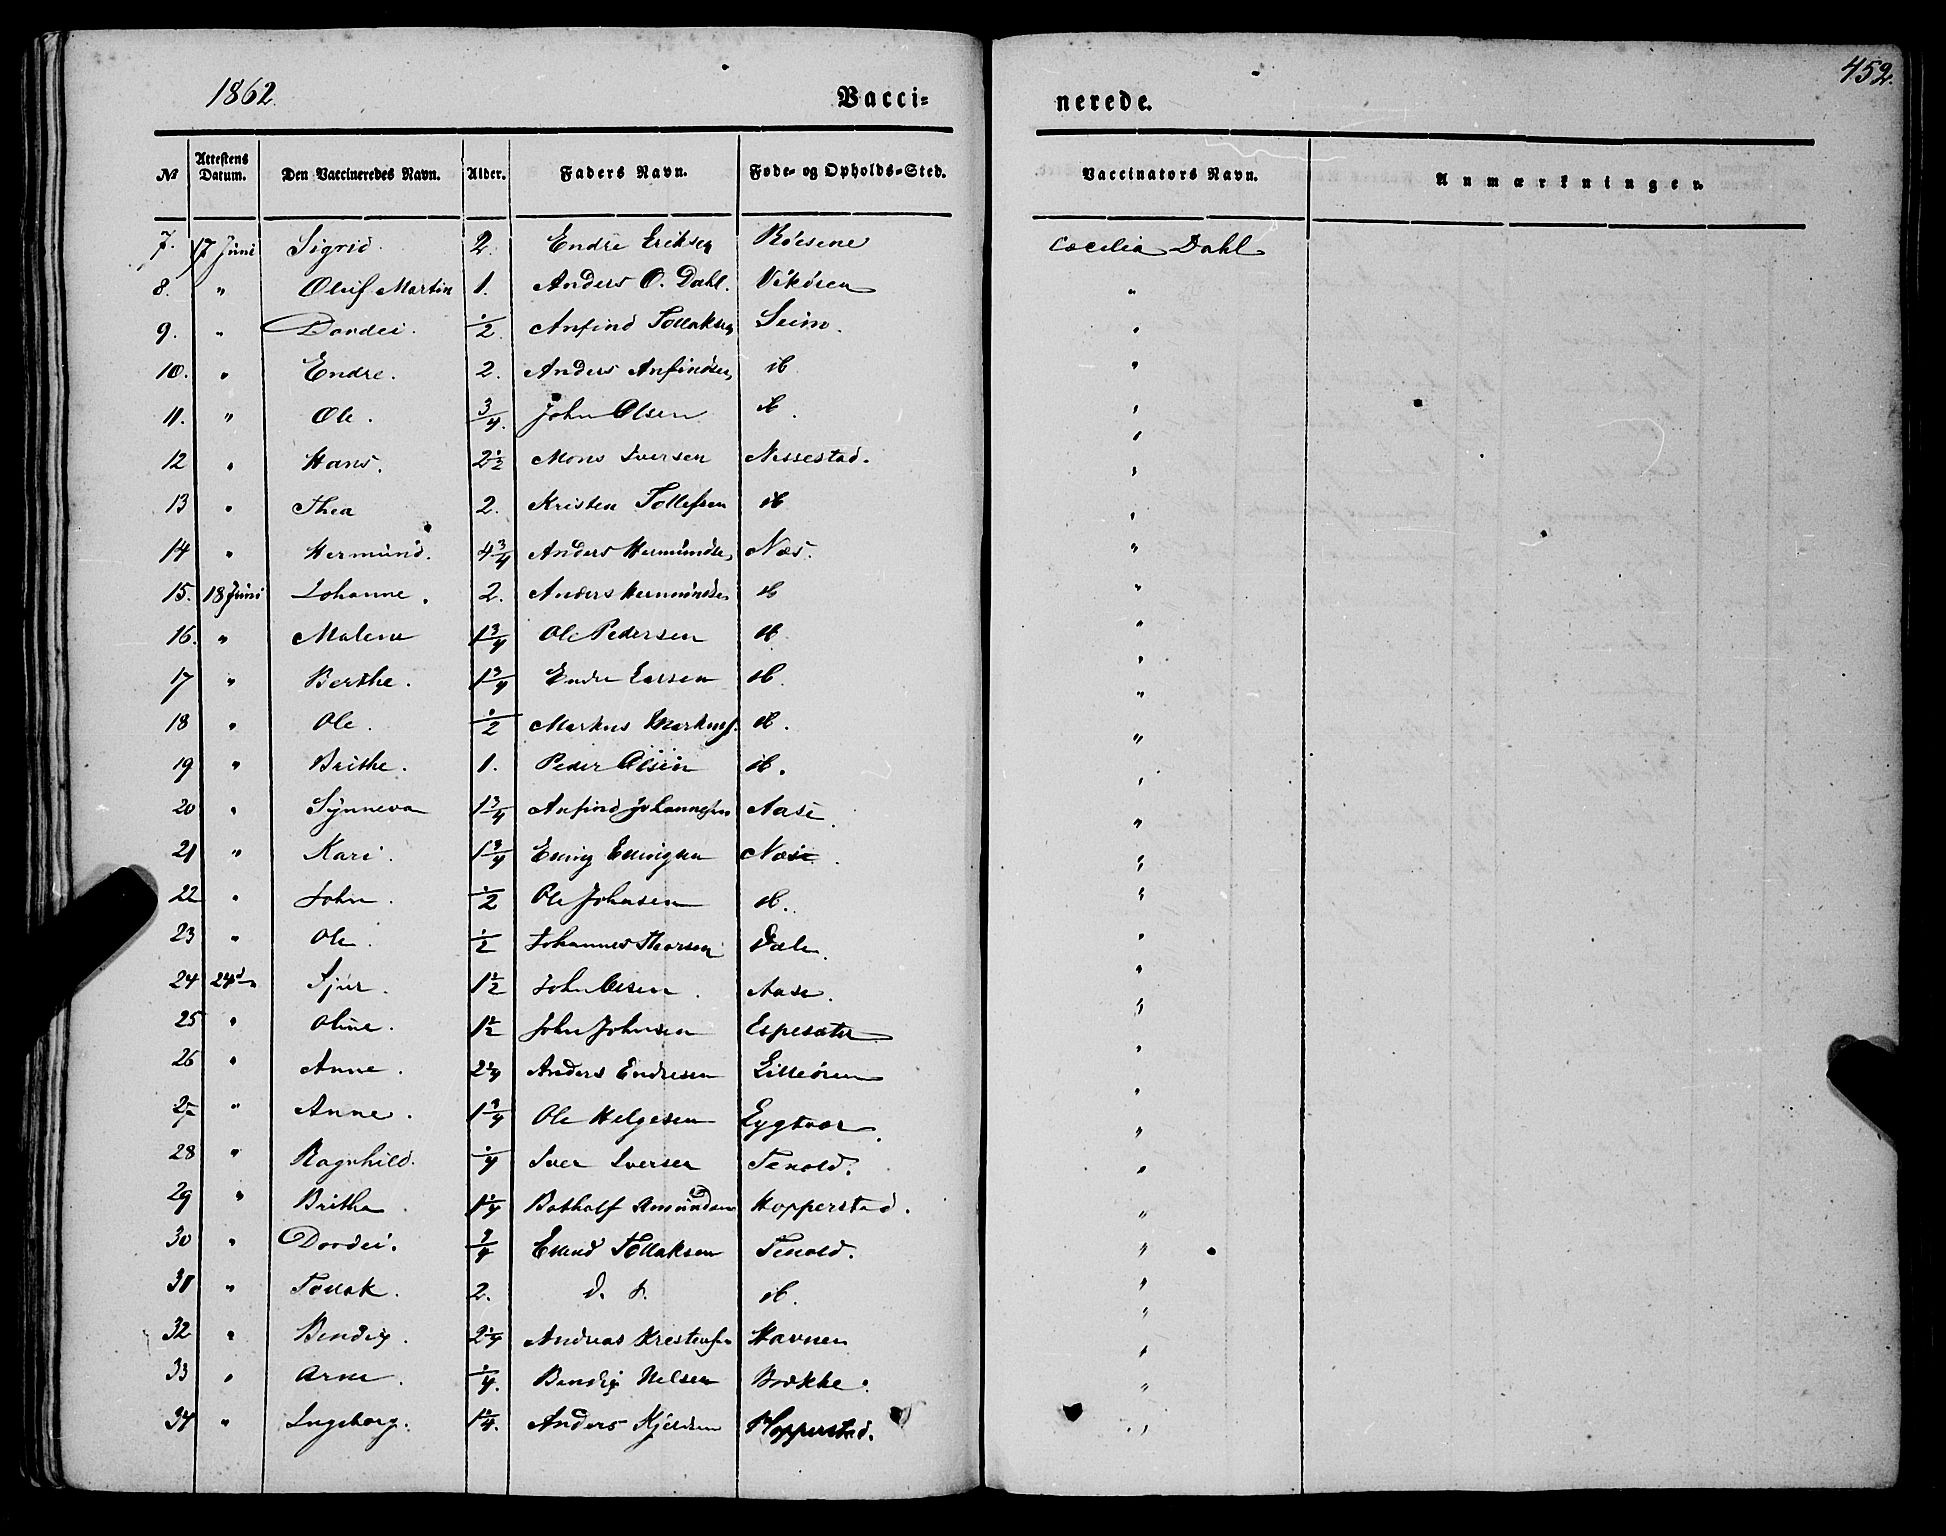 1862. Vacci= nerede. 452.
No Attestens Datum. Den Vaccineredes Navn. Alder. Faders Navn. Føde- og Opholds-Sted. Vaccinators Navn. Anmærkninger.
7. 17 Juni Sigrid. 2. Endre Eriksen Cæcilia Dahl
8. " Oluf Martin 1. Anders O. Dahl. Vikøren "
9. " Dordei. 1/2 Anfind Tollaksen Seim. "
10. " Endre. 2. Anders Anfindsen ib "
11. " Ole. 3/4. John Olsen ib. "
12 " Hans. 2 1/2 Mons Iversen Nissestad. "
13 " Thea 2. Kristen Tollefsen ib "
14 " Hermund. 4 3/4 Anders Hermundsen Næs. "
15. 18 Juni Johanne. 2. Anders Hermundsen ib "
16. " Malene 1 3/4 Ole Pedersen ib "
17 " Berthe. 1 3/4 Endre Larsen ib. "
18 " Ole. 1/2 Markus Markuss. ib. "
19 " Brithe. 1. Peder Olsen ib. "
20 " Synneva 1 3/4 Anfind Johannessen Aase. "
21 " Kari. 1 3/4 Elling Ellingsen Næse. "
22 " John. 1/2 Ole Johnsen ib. "
23 " Ole. 1/2 Johannes Thorsen Dale. "
24 24d Sjur. 1 1/2 John Olsen. Aase. "
25 " Oline. 1 1/2 John Johnsen Espesæter "
26 " Anne. 2 1/4 Anders Endresen Lilleøren "
27 " Anne. 1 3/4 Ole Helgesen "
28 " Ragnhild. 1/4 Iver Iversen Tenold. "
29 " Britha. 1 1/4 Botholf Amundsen Hopperstad. "
30 " Dordei. 3/4 Ellend Tollaksen Tenold. "
31 " Tollak. 2. d. d. ib. "
32 " Bendix. 2 1/4 Andreas Kristensen Havnen "
33 " Arne. 1/4. Bendix Nilsen Brække. "
34 " Ingeborg. 1 1/4. Anders Kjeldsen Hopperstad. "